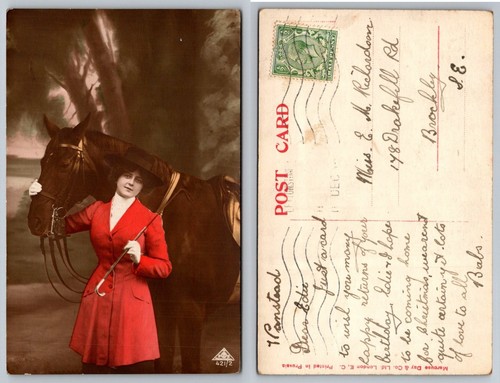 421/2
POST CARD
Miss E. M. Richardson
178 Drakefell Rd
Brockley
S.E.
Wanstead
Dear Edie Just a card
to wish you many
happy returns of your
birthday. Edie & I hope
to be coming home
for Christmas, we arent
quite certain yet lots
of love to all
Babs.
Marcuse Day & Co. Ltd London E.C. Printed in Prussia